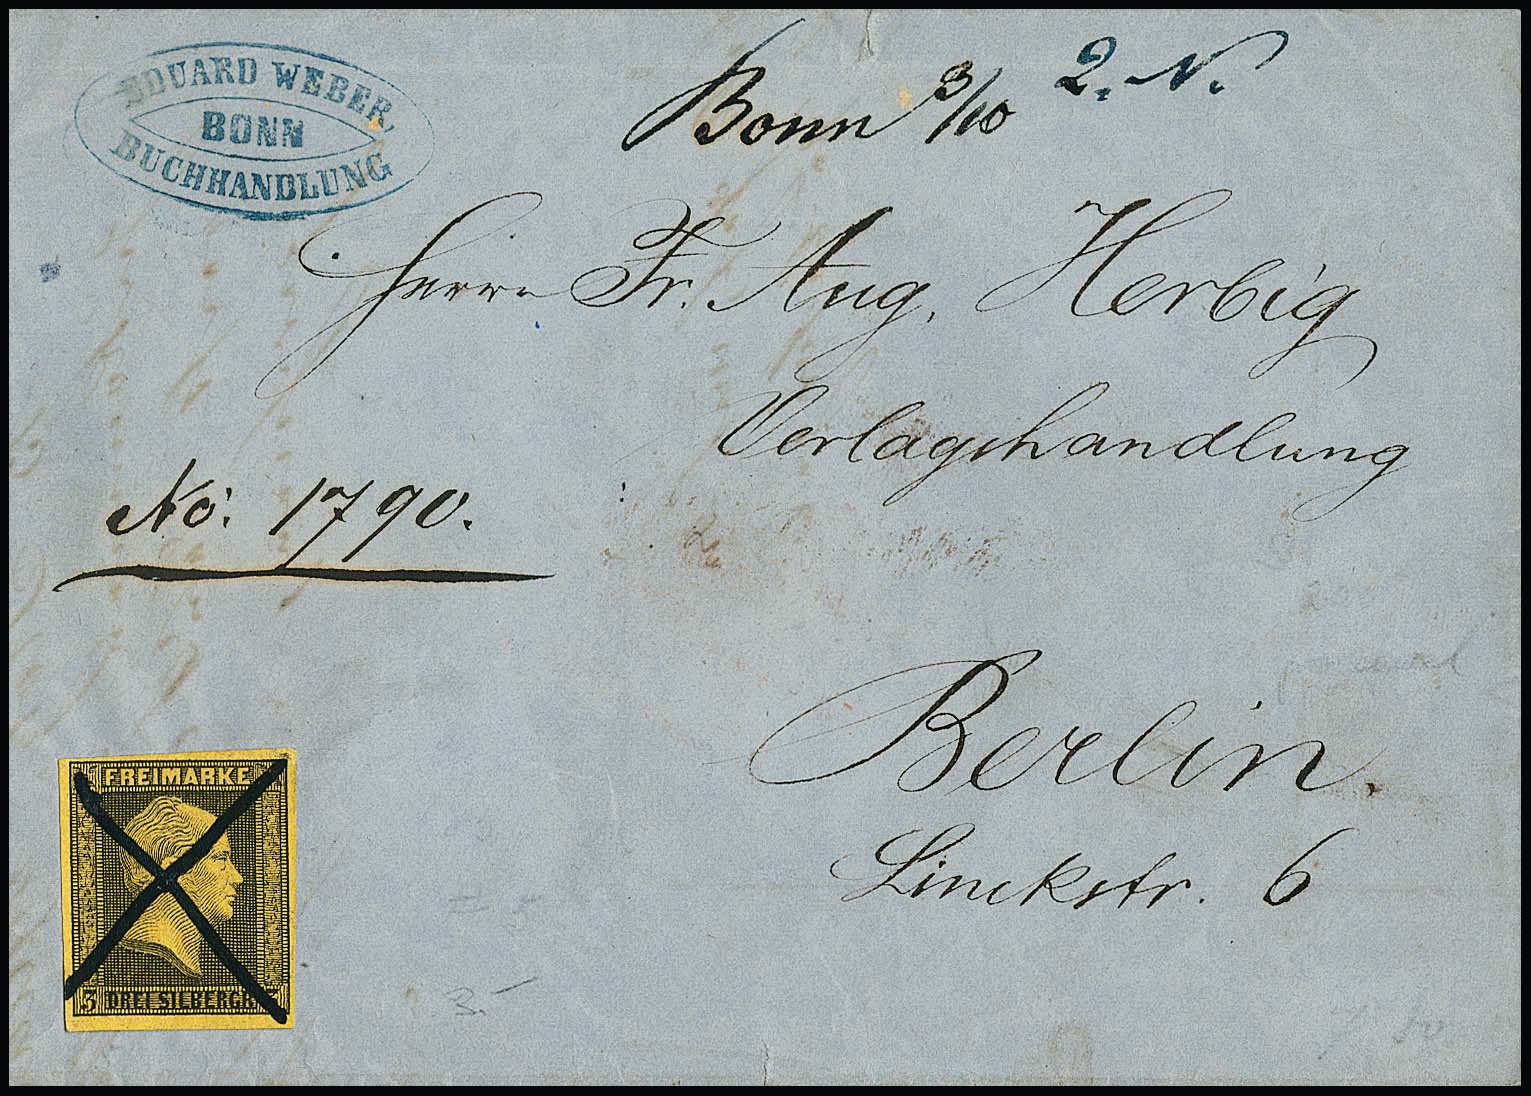 EDUARD WEBER,
BONN
BUCHHANDLUNG
Bonn 3/10 2. N.
Herrn Fr. Aug. Herbig
Verlagshandlung
No: 1790.
Berlin.
Linckstr. 6
FREIMARKE
3 DREI SILBERGR. 3
3.-